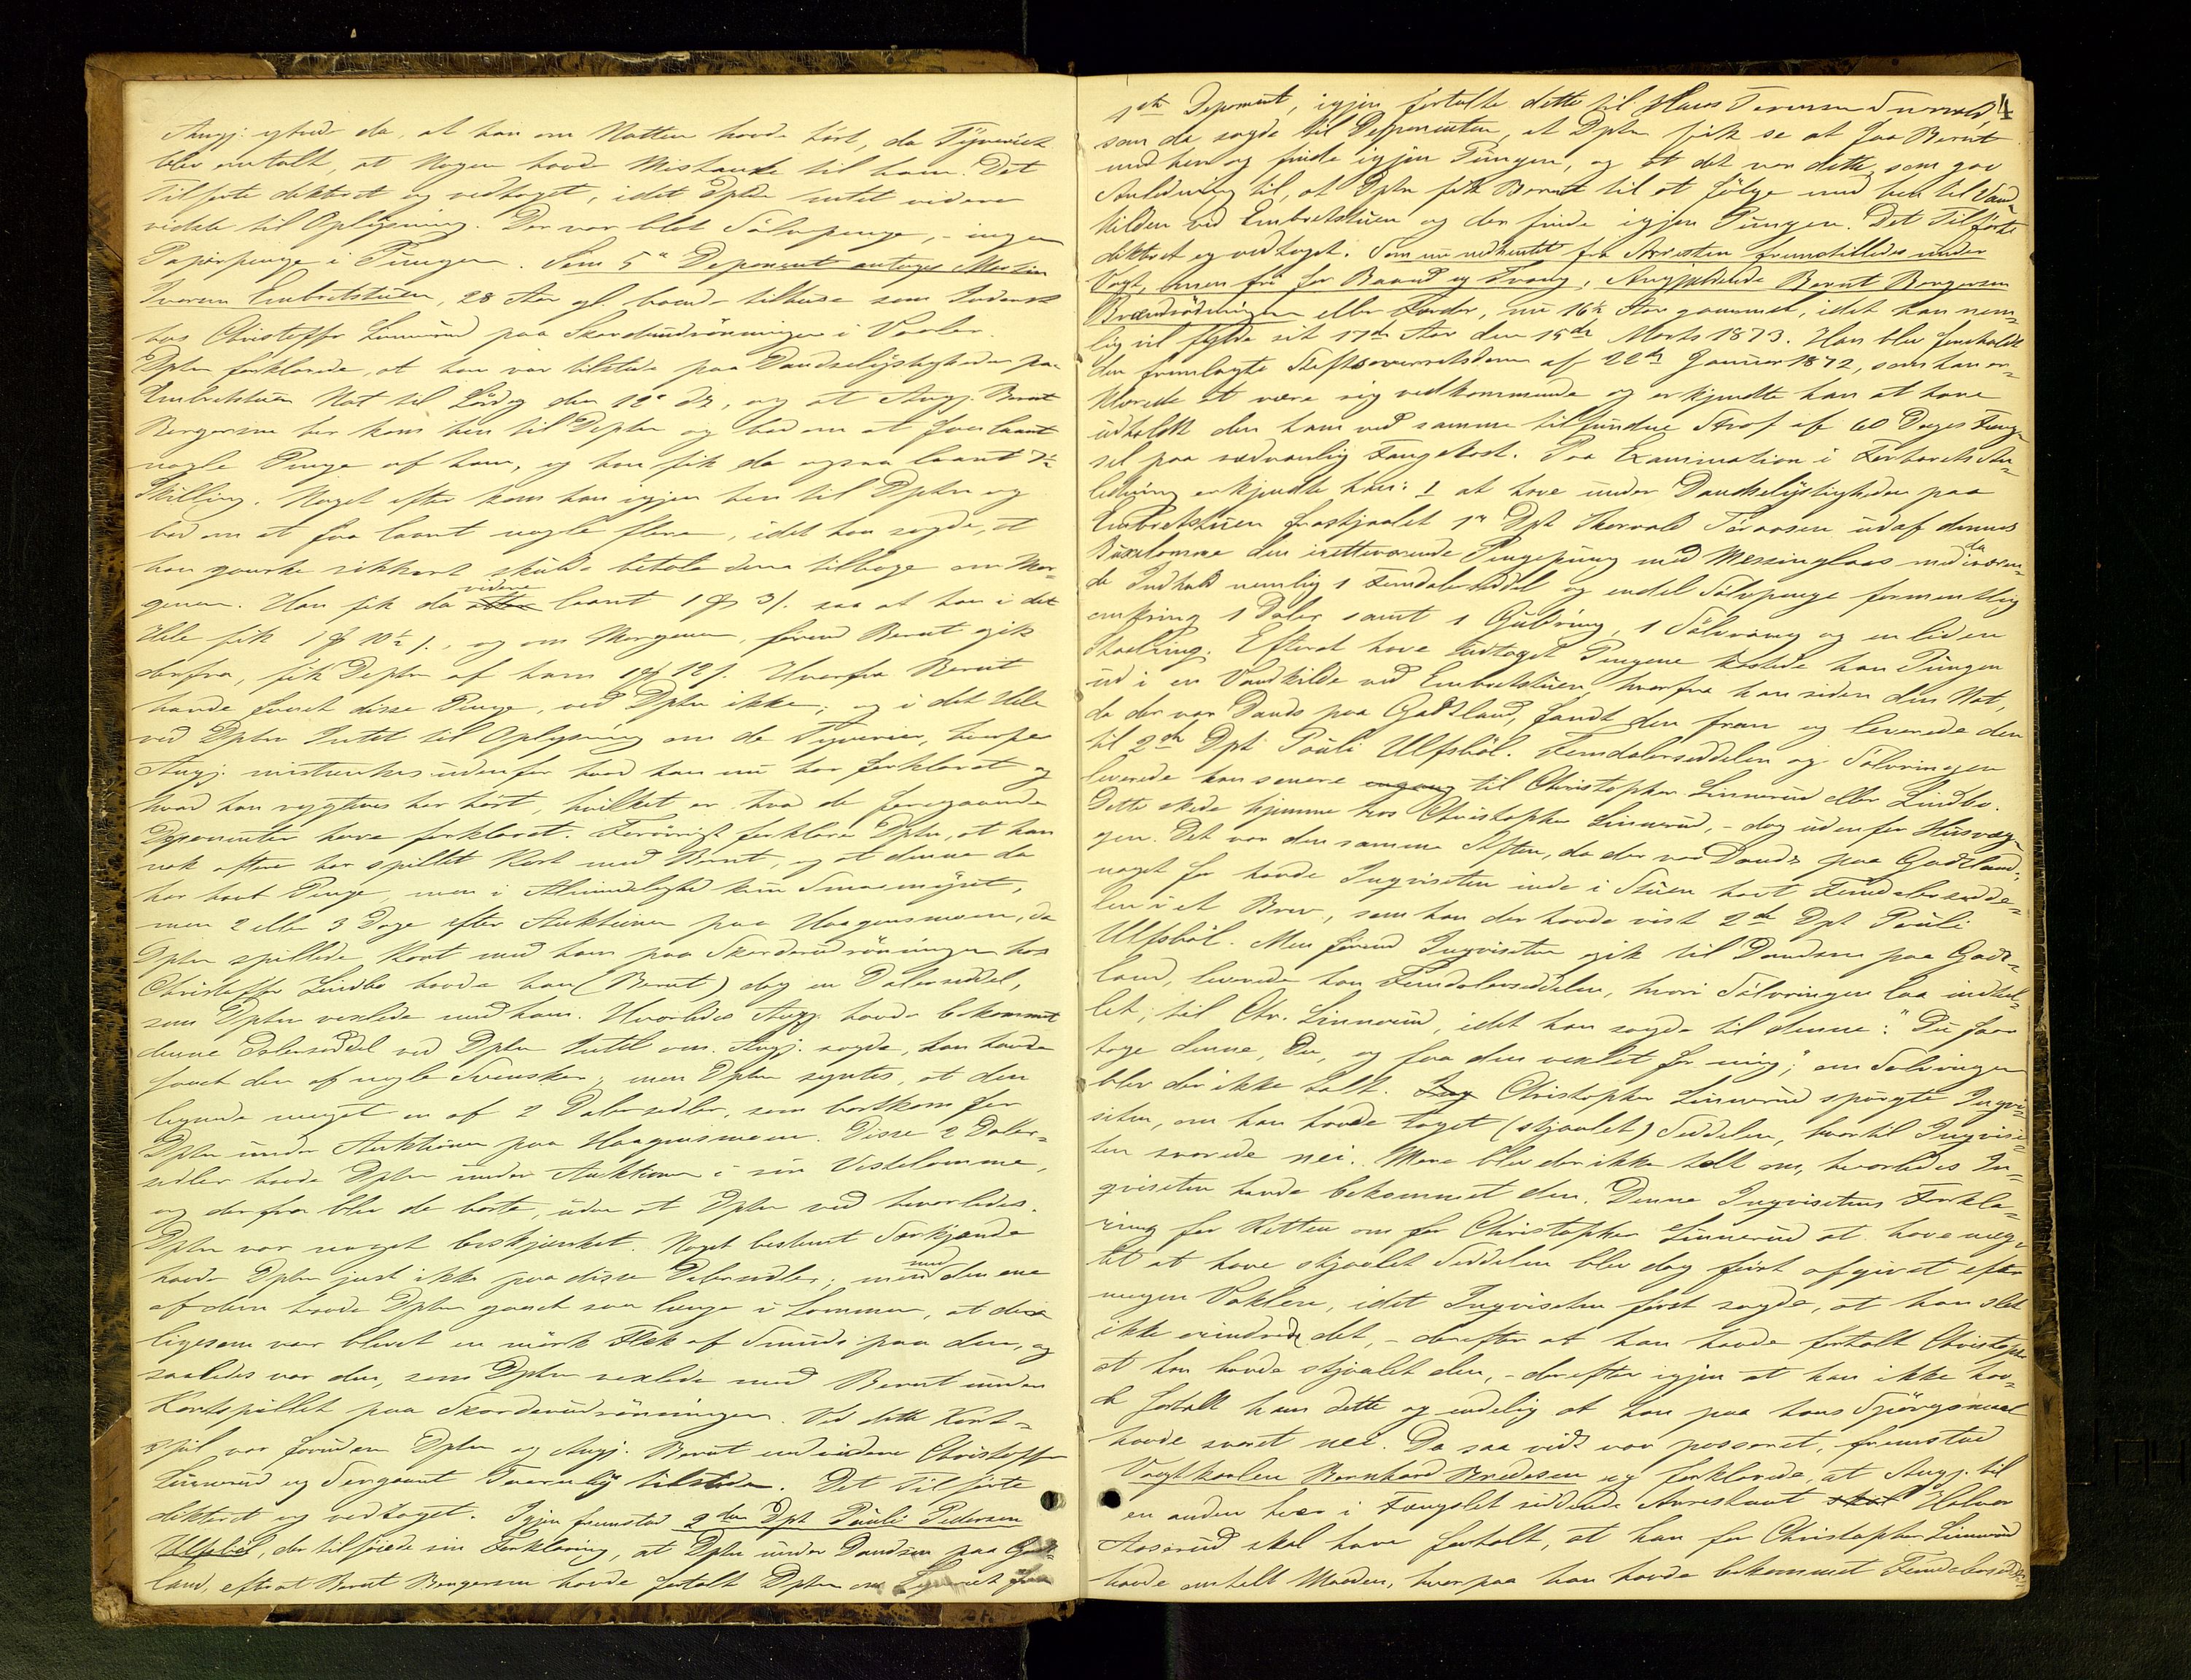 Angj. ytrede da, at han om Natten havde hört, da Tyveriet
blev omtalt, at Nogen havde Mistanke til ham. Det
Tilförte dikteret og vedtaget, idet Dptn intet videre
vidste til Oplysning. Der var blot Sölvpenge, - ingen
Papirpenge i Pungen. Som 5te Deponent antoges Martin
Iversen Embretstuen, 28 Aar gl. boende tilhuse som Inderst
hos Christoffer Linnerud paa Skarderudrönningen i Vaaler.
Dptn forklarede, at han var tilstede paa Dandselystigheden paa
Embretstuen Nat til Lördag den 12te ds, og at Angj. Bernt
Bergersen her kom hen til Dptn og bad om at faa laant
nogle Penge af ham, og han fik da ogsaa laant 7½
Skilling. Noget efter kom han igjen hen til Dptn og
bad om at faa laant nogle flere, idet han sagde, at
han ganske sikkert skulde betale dem tilbage om Mor-
genen. Han fik da videre laant 1 ort 3 s. saa at han i det
Hele fik 1 ort 10½ s., og om Morgenen, forend Bernt gik
derfra, fik Dptn af ham 1 ort 12 s. Hvorfra Bernt
havde faaet disse Penge, ved Dptn ikke; og i det Hele
ved Dptn Intet til Oplysning om de Tyverier, hvorfor
Angj. mistænkes udenfor hvad han nu har forklaret og
hvad han rygtevis har hört, hvilket er hvad de foregaaende
Deponenter have forklaret. Forövrigt forklarer Dptn, at han
nok oftere har spillet Kort med Bernt, og at denne da
har havt Penge, men i Almindelighed kun Smaamynt,
men 2 eller 3 Dage efter Auktionen paa Haagensmoen, da
Dptn spillede Kort med ham paa Skarderudrönningen hos
Christoffer Lindbo havde han (Bernt) dog en Dalerseddel,
som Dptn vexlede med ham. Hvorledes Angj. havde bekommet
denne Dalerseddel ved Dptn Intet om. Angj. sagde, han havde
faaet den af nogle Svensker; men Dptn syntes, at den
lignede meget en af 2 Dalersedler, som bortkom for
Dptn under Auktionen paa Haagensmoen. Disse 2 Daler-
sedler havde Dptn under Auktionen i sin Vestelomme,
og derfra blev de borte, uden at Dptn ved hvorledes.
Dptn var noget beskjænket. Noget bestemt Særkjende
havde Dptn just ikke paa disse Dalersedler; men med den ene
af dem havde Dptn gaaet saa længe i Lommen, at der
ligesom var blevet en mörk Flek af Smuds paa den, og
saaledes var den, som Dptn vexlede med Bernt under
Kortspillet paa Skarderudrönningen. Ved dette Kort-
spil var foruden Dptn og Angj. Bernt endvidere Christoffer
Linnerud og Sergeant tilstede. Det Tilförte
dikteret og vedtaget. Igjen fremstod 2den Dpt Pauli Pedersen
Ulfsböl, der tilföiede sin Forklaring, at Dptn under Dandsen paa Gads-
land, efterat Bernt Bergersen havde fortalt Dptn om Tyveriet fra
4
1ste Deponent, igjen fortalte dette til Hans Iversen
som da sagde til Deponenten, at Dptn fik se at faa Bernt
med hen og finde igjen Pungen, og at det var dette, som gav
Anledning til, at Dptn fik Bernt til at fölge med hen til Vand-
kilden ved Embretstuen og der finde igjen Pungen. Det Tilförte
dikteret og vedtaget. Som nu nedhentet fra Arresten fremstilledes under
Vagt, men fri for Baand og Tvang, Angjældende Bernt Bergersen
Brændrödningen eller Forder, nu 16½ Aar gammel, idet han nem-
lig vil fylde sit 17de Aar den 15de Marts 1873. Han blev foreholdt
den fremlagte Stiftsoverretsdom af 22de Januar 1872, som han er-
klærede at være sig vedkommende og erkjendte han at have
udholdt den ham ved samme tilfundne Straf af 60 Dages Fæng-
sel paa sædvanlig Fangekost. Paa Examination i Forhörets An-
ledning erkjendte han: 1 at have under Dandselystigheden paa
Embretstuen frastjaalet 1ste Dpt Thorvald Taraasen ud af dennes
Buxelomme den iretteværende Pengepung med Messinglaas med da iværen-
de Indhold nemlig 1 Femdalerseddel og endel Sölvpenge formentlig
omkring 1 Daler samt 1 Guldring, 1 Sölvring og en liden
Staalring. Efterat have udtaget Pengene kastede han Pungen
ud i en Vandkilde ved Embretstuen, hvorfra han siden den Nat,
da der var Dands paa Gadsland, fandt den frem og leverede den
til 2den Dpt Pauli Ulfsböl. Femdalerseddelen og Sölvringen
leverede han senere engang til Christopher Linnerud eller Lindbo.
Dette skede hjemme hos Christopher Linnerud, - dog udenfor Husvæg-
gen. Det var den samme Aften, da der var Dands paa Gadsland;
noget för havde Inqvisiten inde i Stuen havt Femdalersedde-
len i et Brev, som han der havde vist 2den Dpt Pauli
Ulfsböl. Men förend Inqvisiten gik til Dandsen paa Gads-
land, leverede han Femdalerseddelen, hvori Sölvringen laa indhul-
let, til Chr. Linnerud, idet han sagde til denne: "Du faar
tage denne, Du, og faa den vexlet for mig"; om Sölvringen
blev der ikke talt. Inq Christopher Linnerud spurgte Inqvi-
siten, om han havde taget (stjaalet) Seddelen, hvortil Inqvisi-
ten svarede nei. Mere blev der ikke talt om, hvorledes In-
qvisiten havde bekommet den. Denne Inqvisitens Forkla-
ring for Retten om for Christopher Linnerud at have næg-
tet at have stjaalet Seddelen blev dog först afgivet efter
megen Vaklen, idet Inqvisiten först sagde, at han slet
ikke erindrede det, - derefter at han havde fortalt Christopher
at han havde stjaalet den, - derefter igjen at han ikke hav-
de fortalt ham dette og endelig at han paa hans Spörgsmaal
havde svaret nei. Da saa vidt var passeret, fremstod
Vagtkarlen Bernhard Bredesen og forklarede, at Angj. til
en anden her i Fængslet siddende Arrestant skal Halvor
Aaserud skal have fortalt, at han for Christopher Linnerud
havde omtalt Maaden, hvorpaa han havde bekommet Femdalersedde-